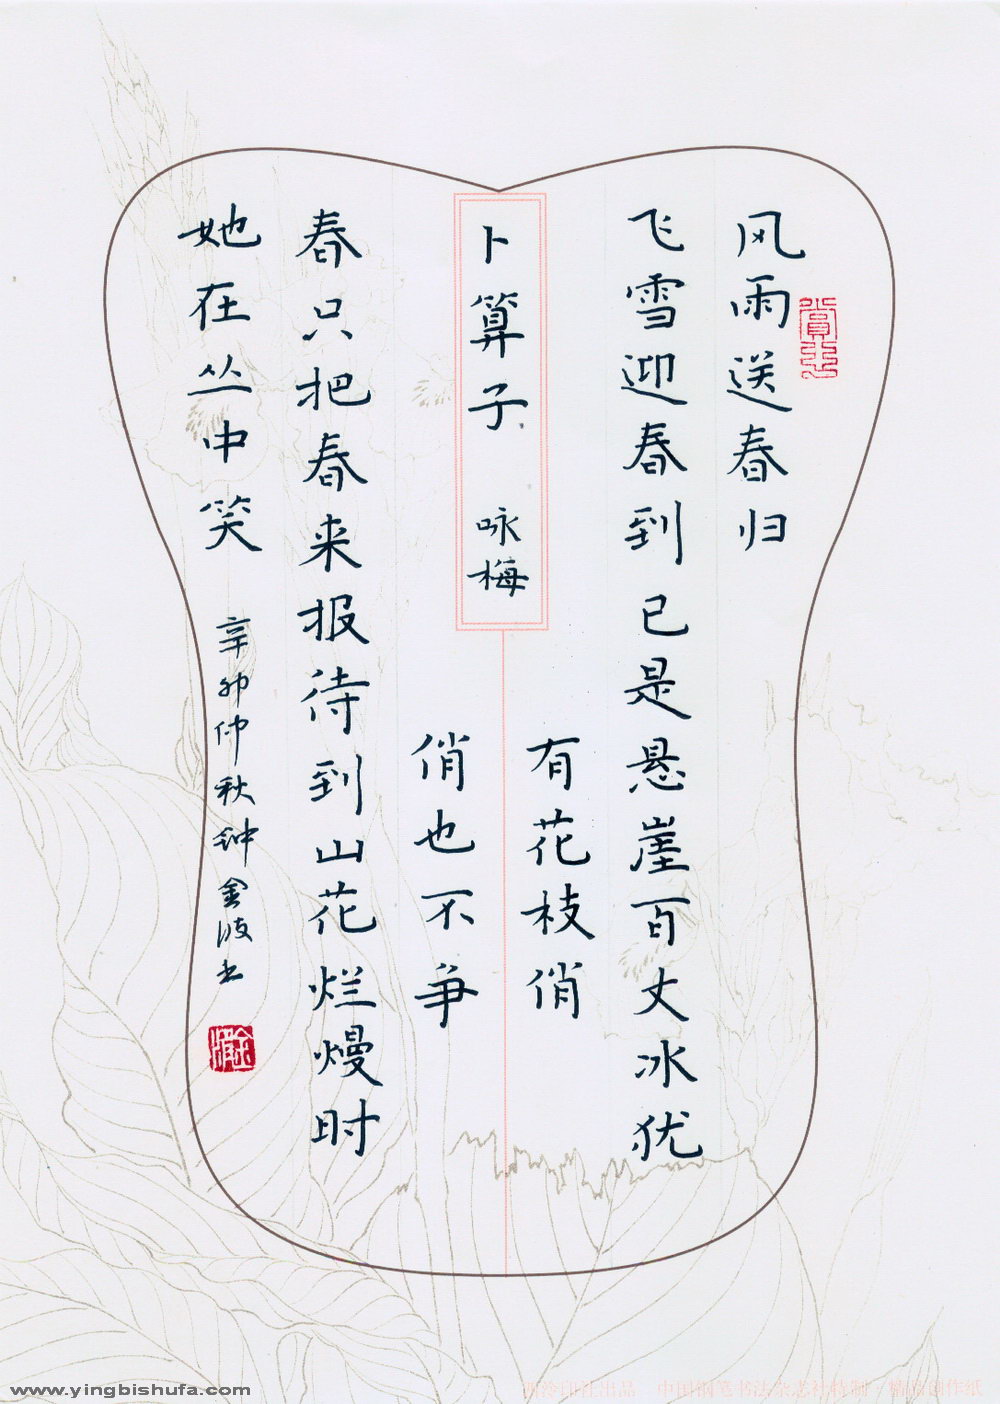 风雨送春归
飞雪迎春到已是悬崖百丈冰犹
有花枝俏
卜算子 咏梅
俏也不争
春只把春来报待到山花烂熳时
她在丛中笑
辛卯仲秋钟金波书
www.yingbishufa.com
西泠印社出品 中国钢笔书法杂志社特制 精品创作纸